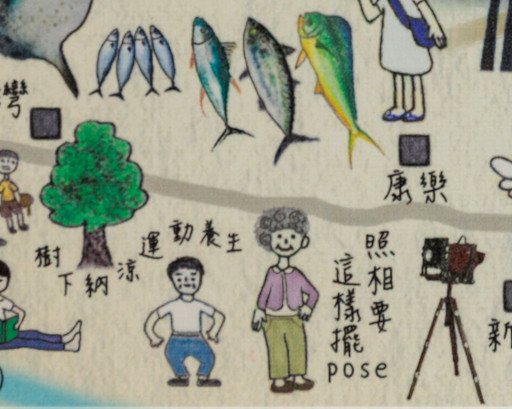 灣
康樂
樹下納涼
運動養生
照相要
這樣擺
pose
新